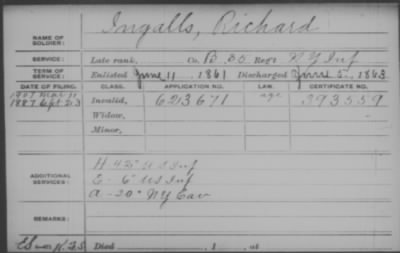 Ingalls, Richard
NAME OF SOLDIER:
SERVICE: Late rank, Co. B. 30 Reg't N Y Inf
TERM OF SERVICE: Enlisted June 11, 1861 Discharged June 5, 1863
DATE OF FILING. CLASS. APPLICATION NO. LAW. CERTIFICATE NO.
1907 Mar 11
1887 Sept 23 Invalid, 623671 age 393559
Widow,
Minor,
ADDITIONAL SERVICES:
H 42" U S Inf
E. 6" U S Inf
A - 20" N Y Cav
REMARKS:
Died , 1 , at